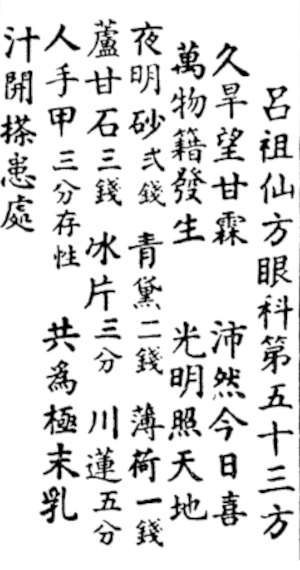 呂祖仙方眼科第五十三方
久旱望甘霖 沛然今日喜
萬物籍發生 光明照天地
夜明砂弍錢 青黛二錢 薄荷一錢
蘆甘石三錢 冰片三分 川蓮五分
人手甲三分存性 共為極末乳
汁開搽患處